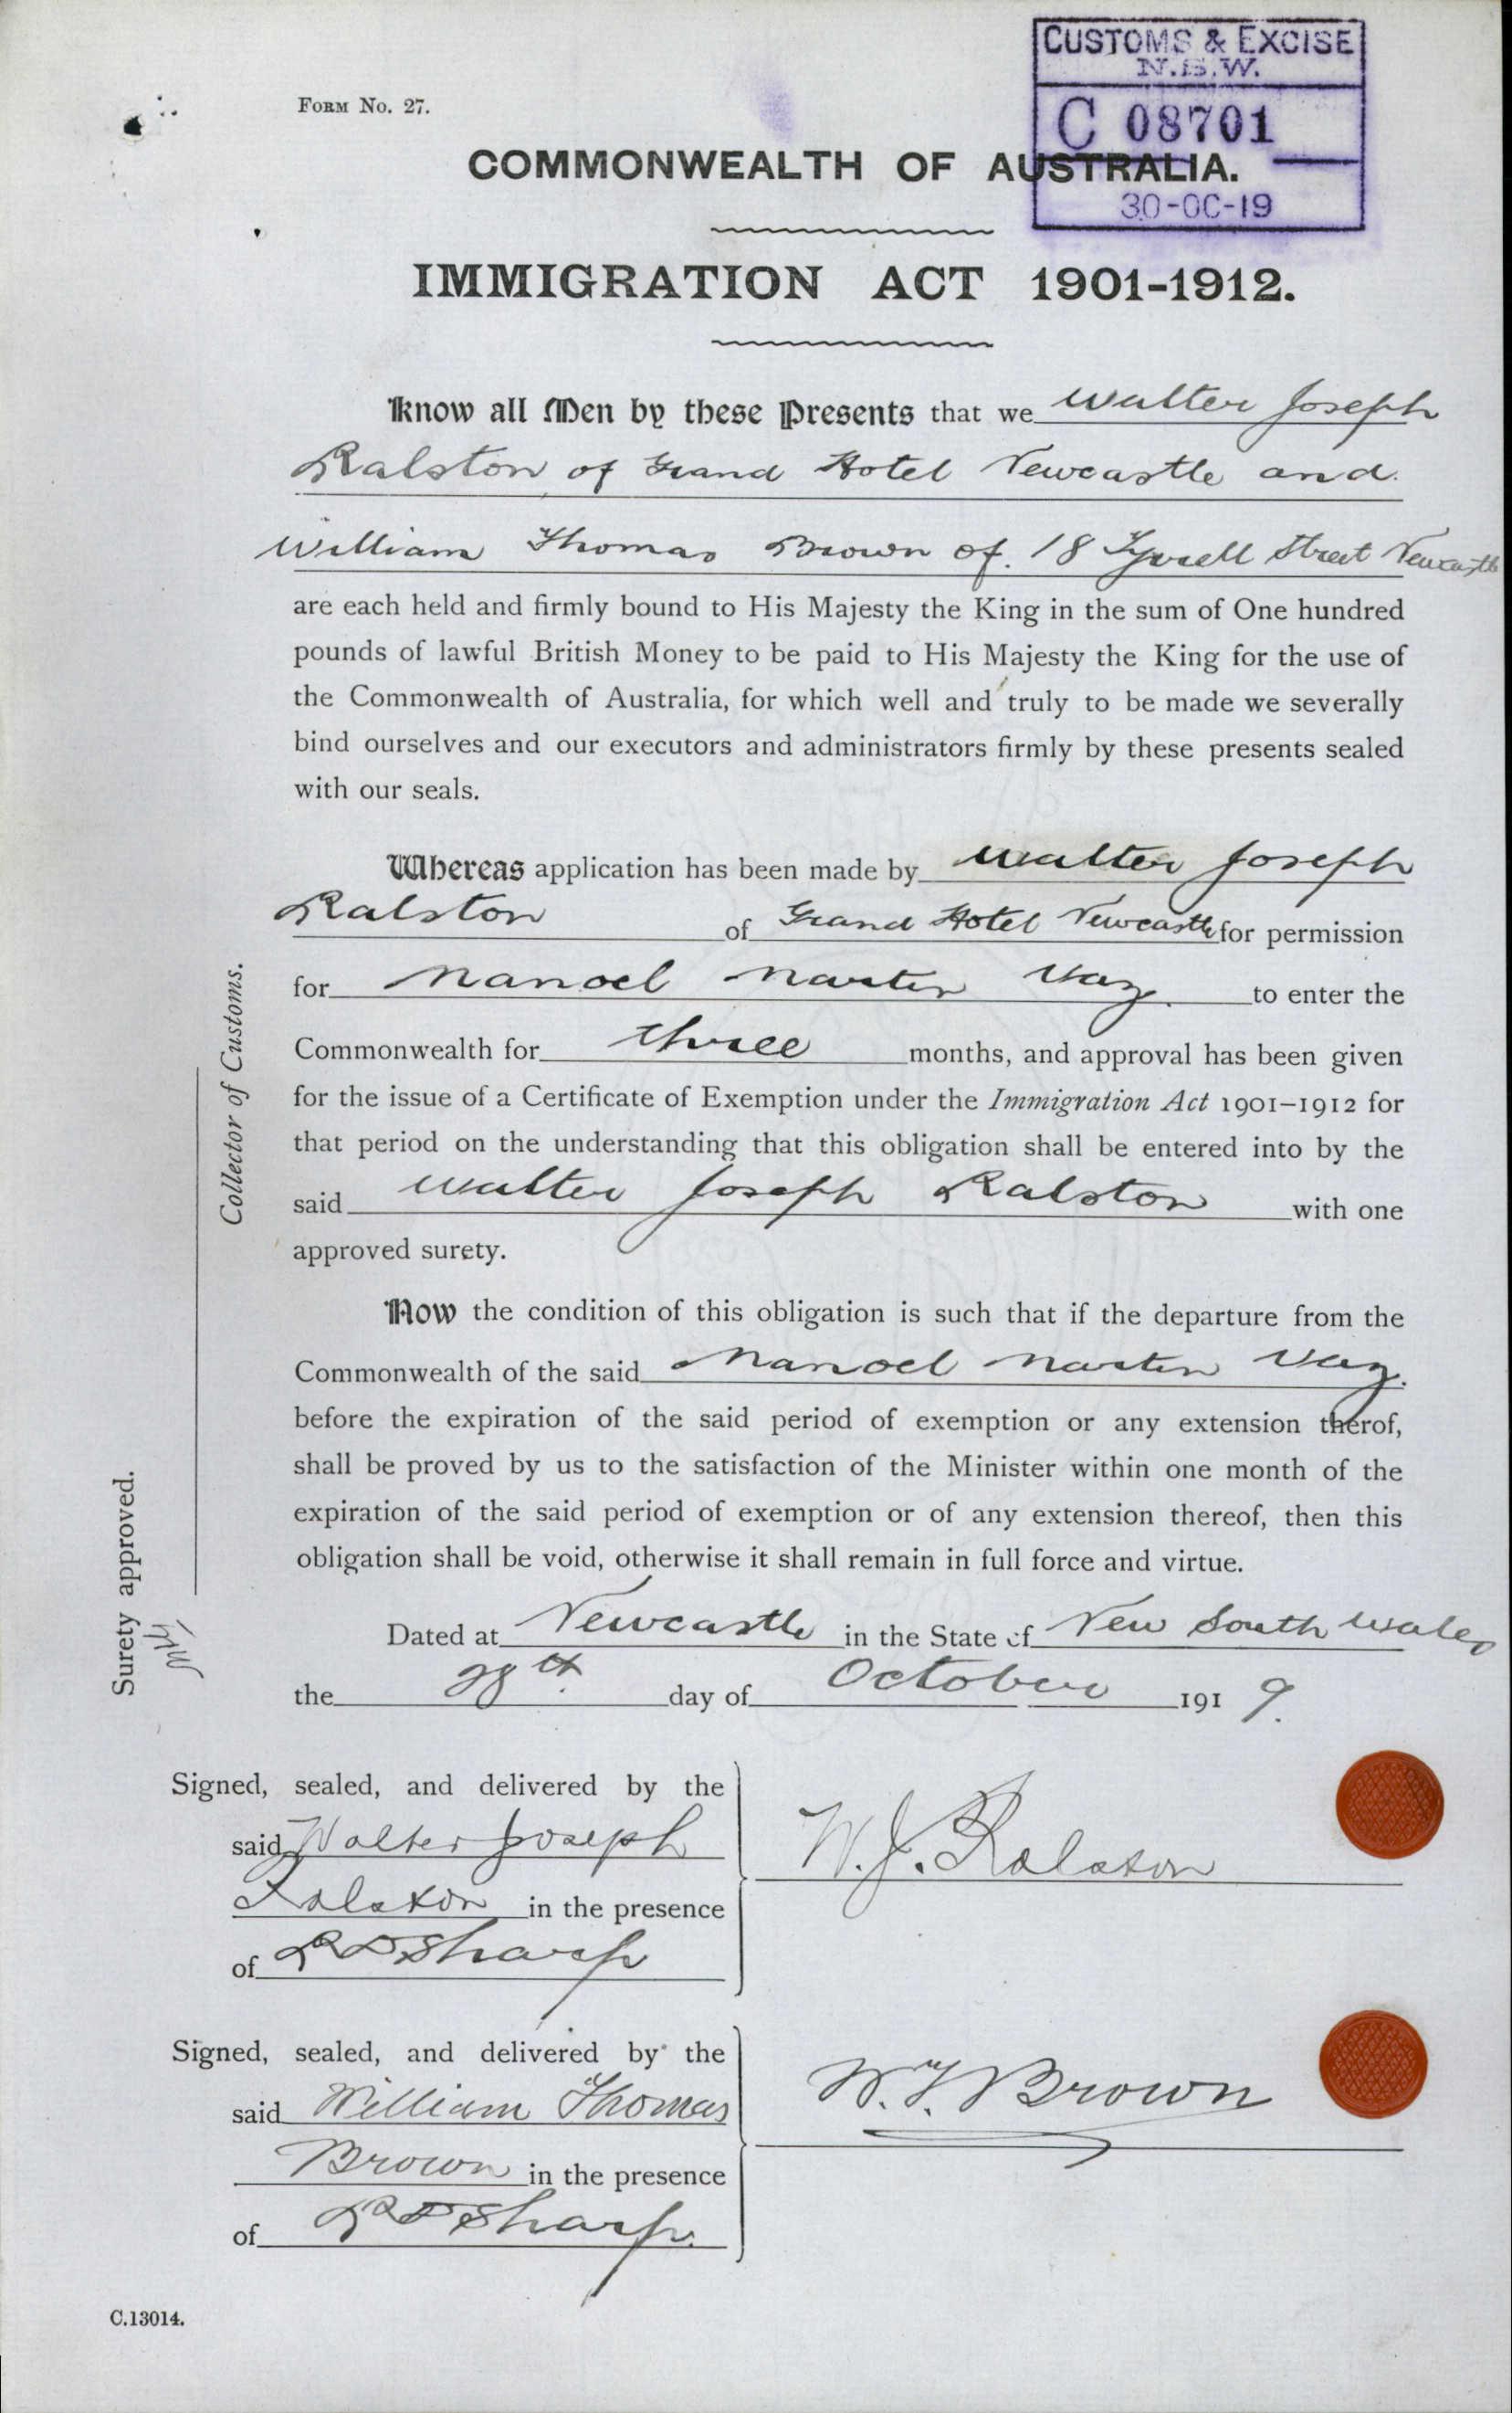 CUSTOMS & EXCISE
N.S.W.
C 08701
30-OC-19
FORM No. 27.
COMMONWEALTH OF AUSTRALIA.
IMMIGRATION ACT 1901-1912.
Know all Men by these Presents that we Walter Joseph
Ralston of Grand Hotel Newcastle and
William Thomas Brown of 18 Tyrrell Street Newcastle
are each held and firmly bound to His Majesty the King in the sum of One hundred
pounds of lawful British Money to be paid to His Majesty the King for the use of
the Commonwealth of Australia, for which well and truly to be made we severally
bind ourselves and our executors and administrators firmly by these presents sealed
with our seals.
Whereas application has been made by Walter Joseph
Ralston of Grand Hotel Newcastle for permission
for Manoel Martin Vaz. to enter the
Commonwealth for three months, and approval has been given
for the issue of a Certificate of Exemption under the Immigration Act 1901–1912 for
that period on the understanding that this obligation shall be entered into by the
said Walter Joseph Ralston with one
approved surety.
Now the condition of this obligation is such that if the departure from the
Commonwealth of the said Manoel Martin Vaz.
before the expiration of the said period of exemption or any extension therof,
shall be proved by us to the satisfaction of the Minister within one month of the
expiration of the said period of exemption or of any extension thereof, then this
obligation shall be void, otherwise it shall remain in full force and virtue.
Dated at Newcastle in the State of New South Wales
the 28th day of October 1919.
Surety approved.
Collector of Customs.
Signed, sealed, and delivered by the
said Walter Joseph
Ralston in the presence
of R D Sharp
W. J. Ralston
Signed, sealed, and delivered by the
said William Thomas
Brown in the presence
of R D Sharp.
W. T. Brown
C.13014.